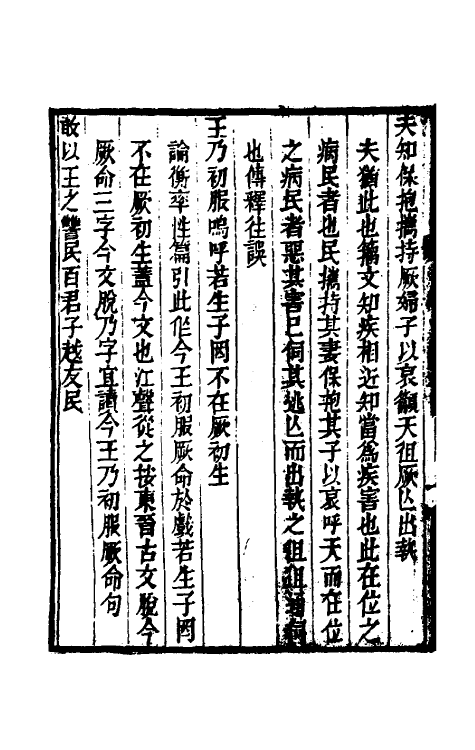 夫知保抱攜持厥婦子以哀籲天徂厥亾出執
夫猶此也籀文知疾相近知當爲疾害也此在位之
病民者也民攜持其妻保抱其子以哀呼天而在位
之病民者惡其害己伺其逃亾而出執之徂徂通伺
也傳釋往誤
王乃初服嗚呼若生子罔不在厥初生
論衡率性篇引此作今王初服厥命於戲若生子罔
不在厥初生蓋今文也江聲從之按東晉古文脫今
厥命三字今文脫乃字宜讀今王乃初服厥命句
敢以王之讐民百君子越友民